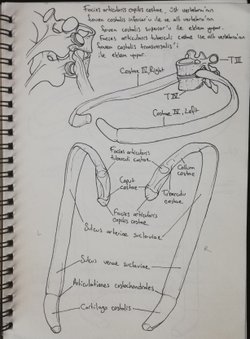 Facies articularis capitis costae: Üst vertebra'nın
fovea costalis inferior'u ile ve alt vertebra'nın
fovea costalis superior'u ile eklem yapar.
Facies articularis tuberculi costae ise alt vertebra'nın
fovea costalis transversalis'i
ile eklem yapar.
Costae IV, Right
TIII
TIV
Costae IV, Left
Facies articularis
tuberculi costae
Collum
costae
Caput
costae
Tuberculu
costae
Facies articularis
capitis costae
Sulcus arteriae subclaviae
L
R
Sulcus venae subclaviae
Articulationes costochondrales
Cartilago costalis